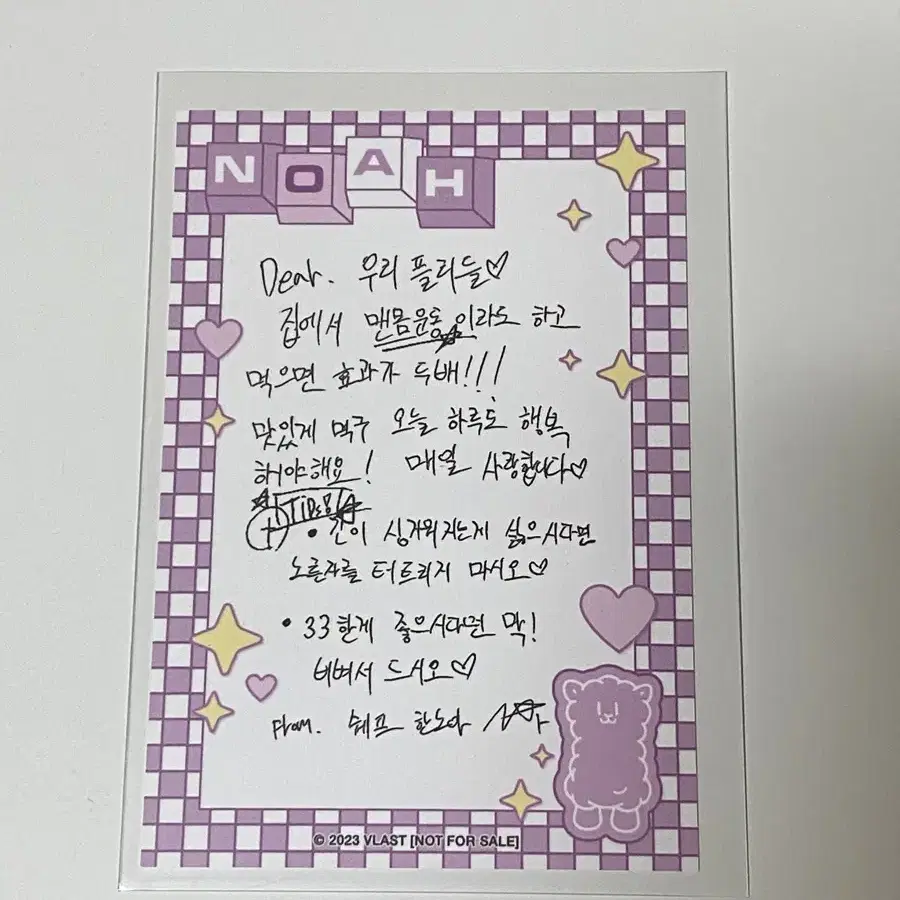 NOAH
Dear. 우리 플리들♡
집에서 맨몸운동 이라도 하고
먹으면 효과가 두배!!!
맛있게 먹구 오늘 하루도 행복
해야해요! 매일 사랑합니다♡
+ TIP
• 간이 싱거워지는게 싫으시다면
노른자를 터트리지 마시오♡
• 33한게 좋으시다면 막!
비벼서 드시오♡
From. 쉐프 한노아
© 2023 VLAST [NOT FOR SALE]